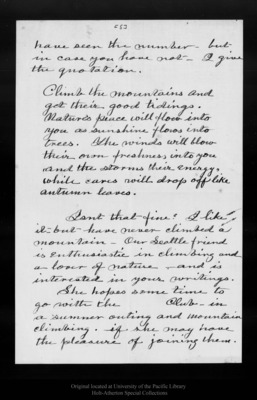 have seen the number - but
in case you have not - I give
the quotation.
Climb the mountains and
get their good tidings.
Nature's peace will flow into
you as sunshine flows into
trees. The winds will blow
their own freshness into you
and the storms their energy,
while cares will drop off like
autumn leaves.
Isnt that fine? I like
it - but have never climbed a
mountain - Our Seattle friend
is enthusiastic in climbing and
a lover of nature - and is
interested in your writings.
She hopes some time to
go with the Club - in
a summer outing and mountain
climbing - if she may have
the pleasure of joining them.
Original located at University of the Pacific Library
Holt-Atherton Special Collections